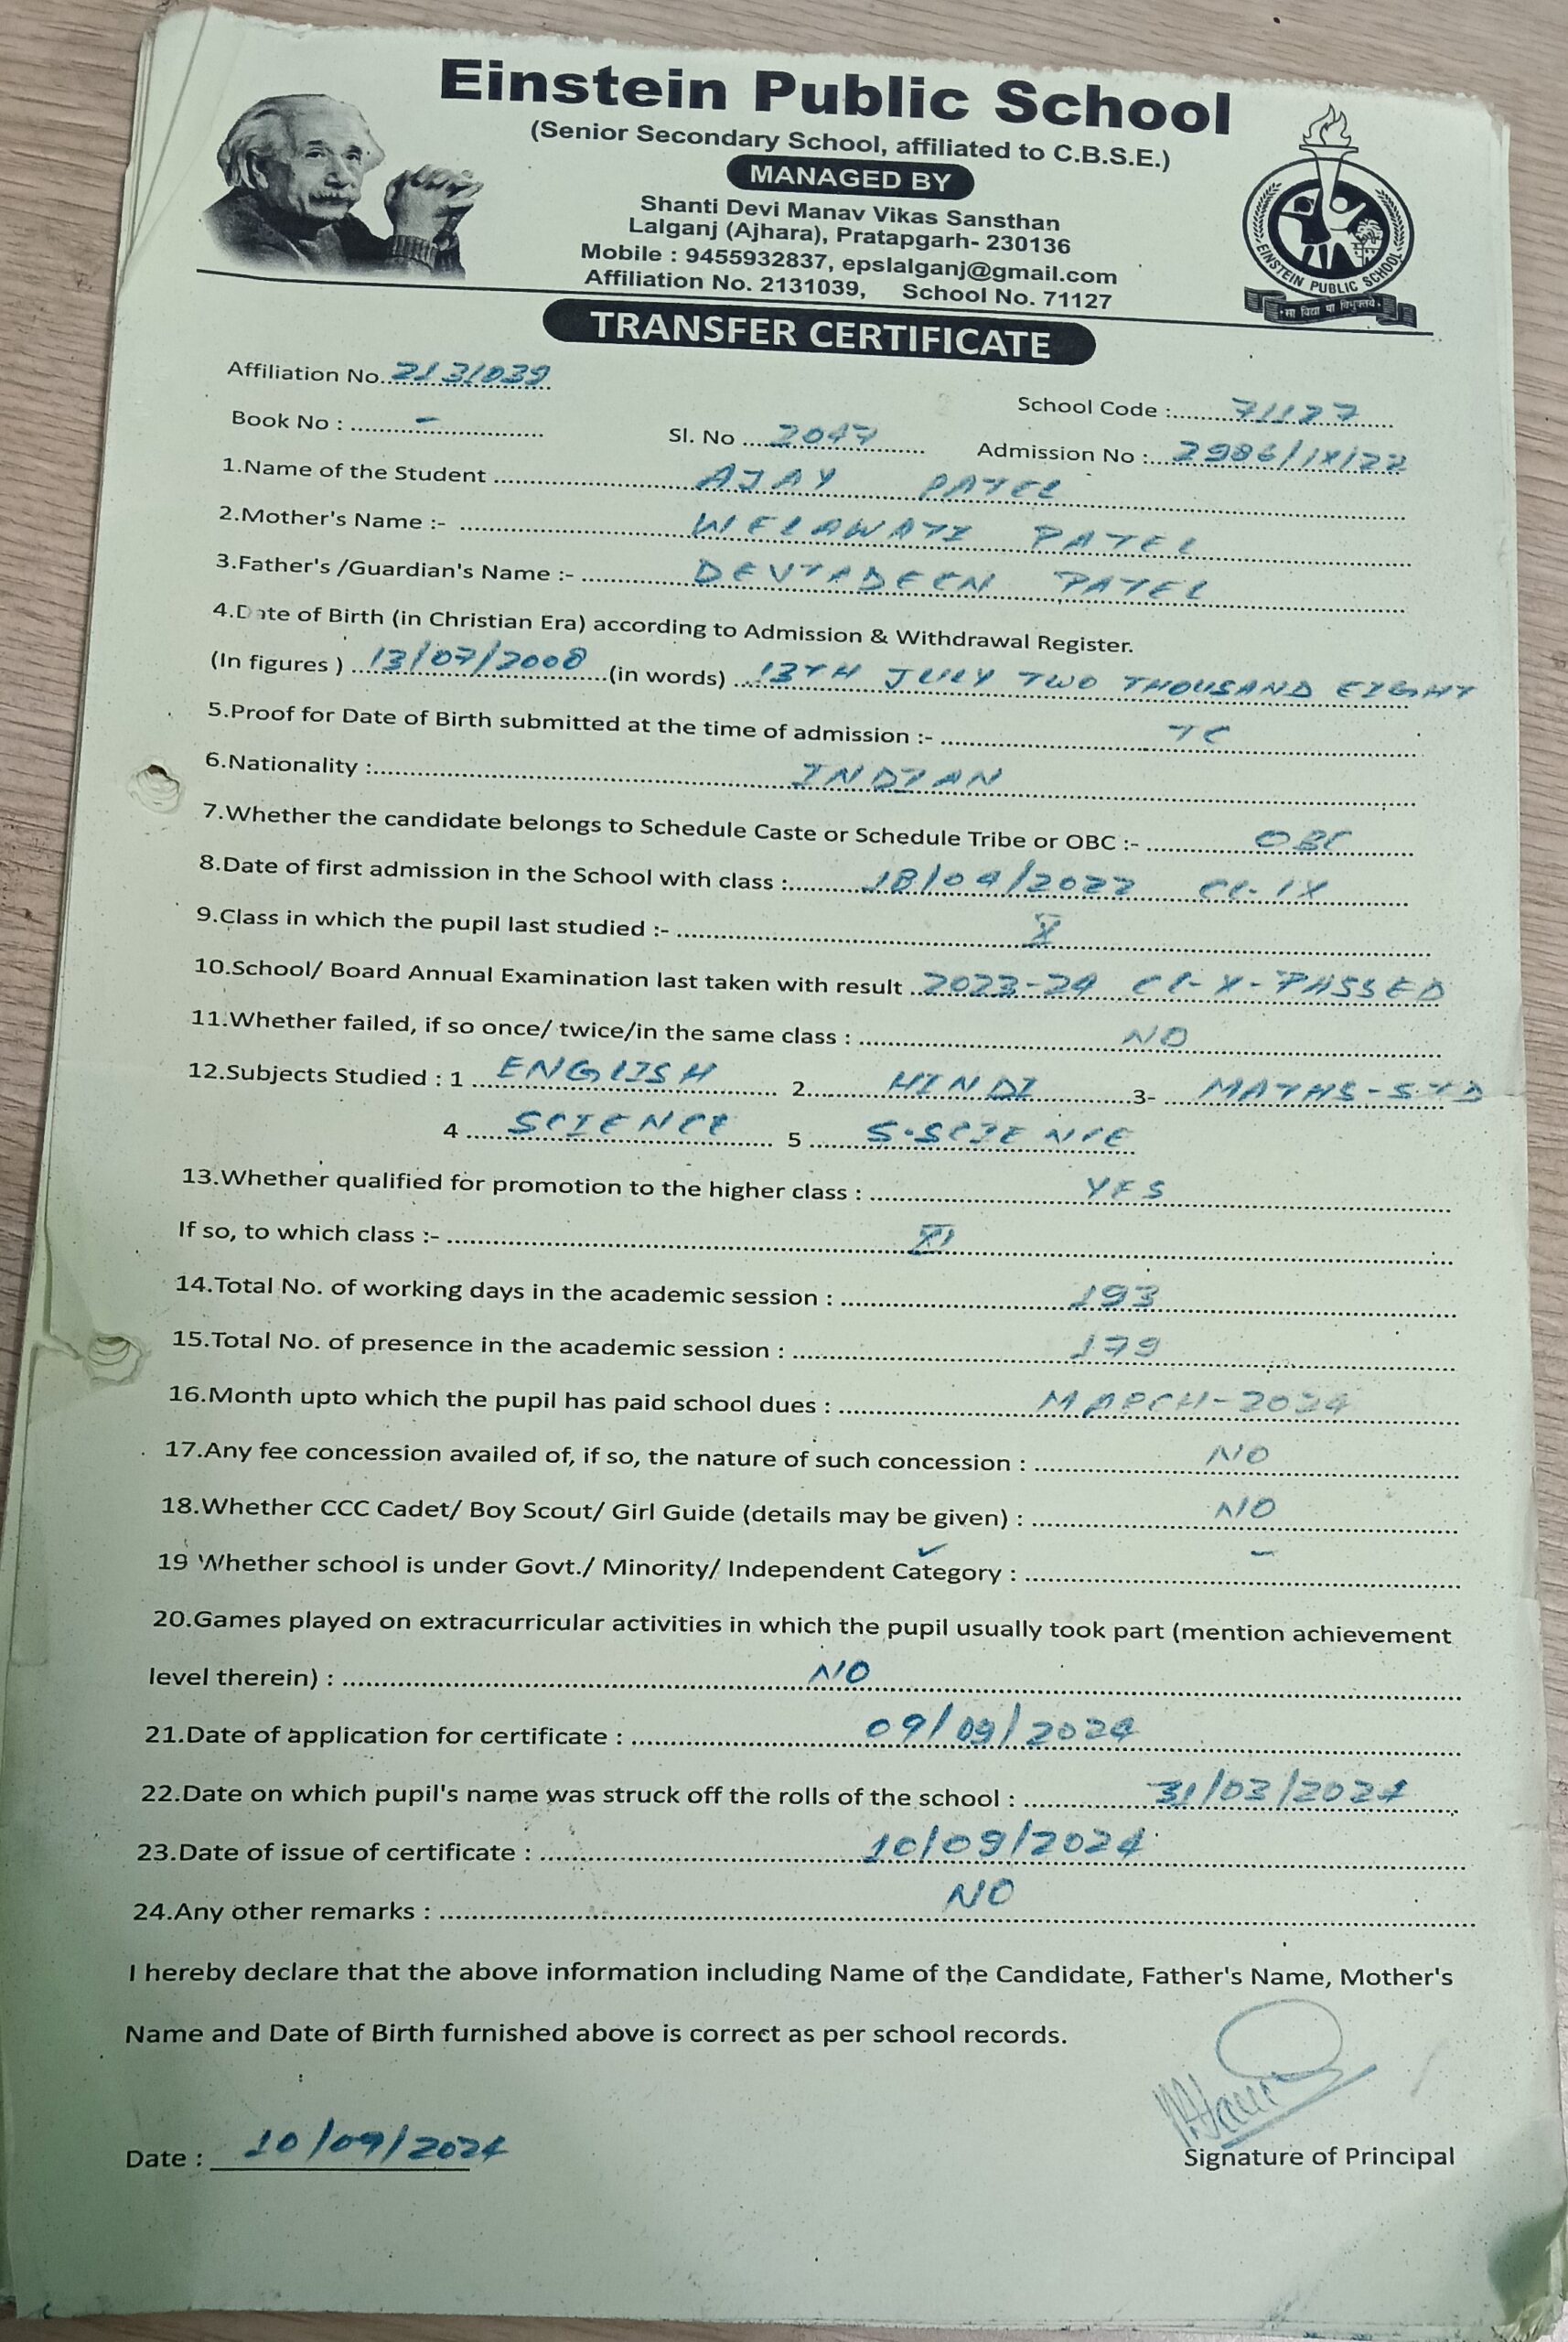 Einstein Public School
(Senior Secondary School, affiliated to C.B.S.E.)
MANAGED BY
Shanti Devi Manav Vikas Sansthan
Lalganj (Ajhara), Pratapgarh- 230136
Mobile : 9455932837, epslalganj@gmail.com
Affiliation No. 2131039, School No. 71127
EINSTEIN PUBLIC SCHOOL
सा विद्या या विमुक्तये
TRANSFER CERTIFICATE
Affiliation No. 2131039 School Code : 71127
Book No : - Sl. No 2047 Admission No : 2986/IX/22
1.Name of the Student AJAY PATEL
2.Mother's Name :- WELAWATI PATEL
3.Father's /Guardian's Name :- DEVTADEEN PATEL
4.Date of Birth (in Christian Era) according to Admission & Withdrawal Register.
(In figures ) 13/07/2008 (in words) 13TH JULY TWO THOUSAND EIGHT
5.Proof for Date of Birth submitted at the time of admission :- TC
6.Nationality : INDIAN
7.Whether the candidate belongs to Schedule Caste or Schedule Tribe or OBC :- OBC
8.Date of first admission in the School with class : 18/04/2022 CL-IX
9.Class in which the pupil last studied :- X
10.School/ Board Annual Examination last taken with result 2023-24 CL-X-PASSED
11.Whether failed, if so once/ twice/in the same class : NO
12.Subjects Studied : 1 ENGLISH 2 HINDI 3- MATHS-STD
4 SCIENCE 5 S.SCIENCE
13.Whether qualified for promotion to the higher class : YES
If so, to which class :- XI
14.Total No. of working days in the academic session : 193
15.Total No. of presence in the academic session : 179
16.Month upto which the pupil has paid school dues : MARCH-2024
17.Any fee concession availed of, if so, the nature of such concession : NO
18.Whether CCC Cadet/ Boy Scout/ Girl Guide (details may be given) : NO
19 Whether school is under Govt./ Minority/ Independent Category : -
20.Games played on extracurricular activities in which the pupil usually took part (mention achievement
level therein) : NO
21.Date of application for certificate : 09/09/2024
22.Date on which pupil's name was struck off the rolls of the school : 31/03/2024
23.Date of issue of certificate : 10/09/2024
24.Any other remarks : NO
I hereby declare that the above information including Name of the Candidate, Father's Name, Mother's
Name and Date of Birth furnished above is correct as per school records.
Date : 10/09/2024
Signature of Principal